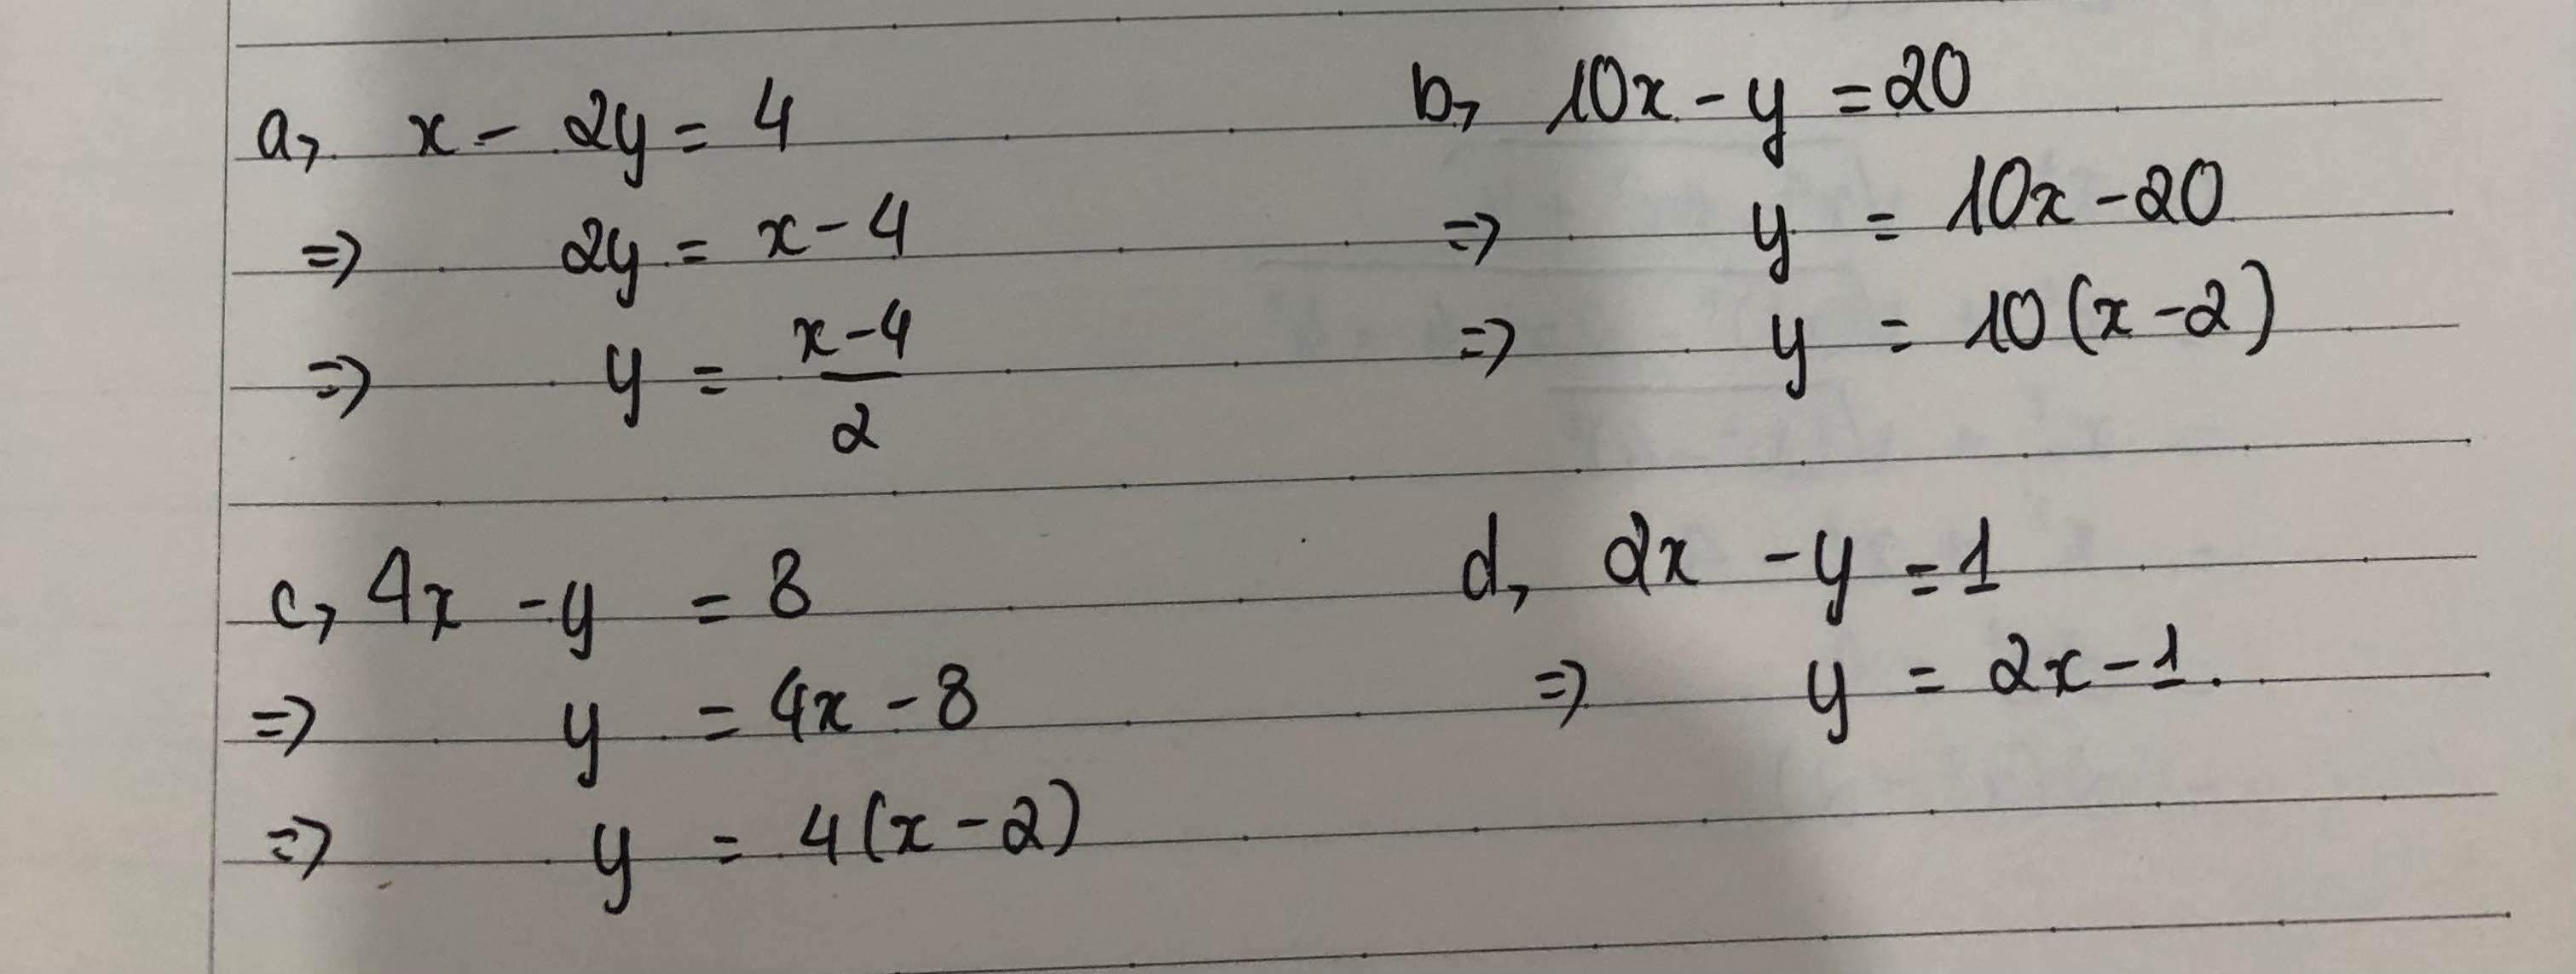 a, x - 2y = 4
=> 2y = x - 4
=> y = \frac{x-4}{2}
b, 10x - y = 20
=> y = 10x - 20
=> y = 10(x - 2)
c, 4x - y = 8
=> y = 4x - 8
=> y = 4(x - 2)
d, 2x - y = 1
=> y = 2x - 1.